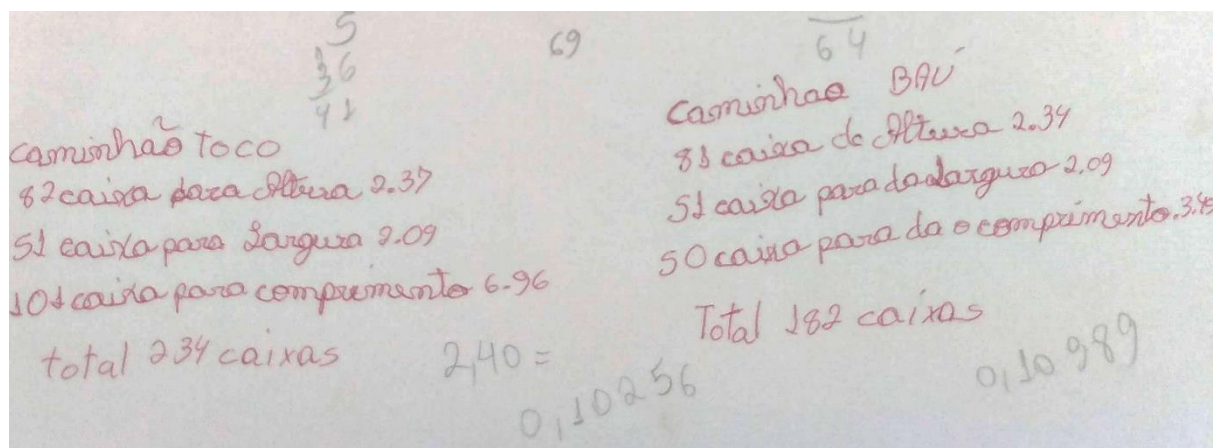 5
36
41
69
64
caminhão Toco
82 caixa para Altura 2.37
51 caixa para Largura 2.09
101 caixa para comprimento 6.96
total 234 caixas
2,40 =
0,10256
Caminhao BAÚ
81 caixa de Altura 2.34
51 caixa para da Largura 2,09
50 caixa para da o comprimento.
Total 182 caixas
0,10989